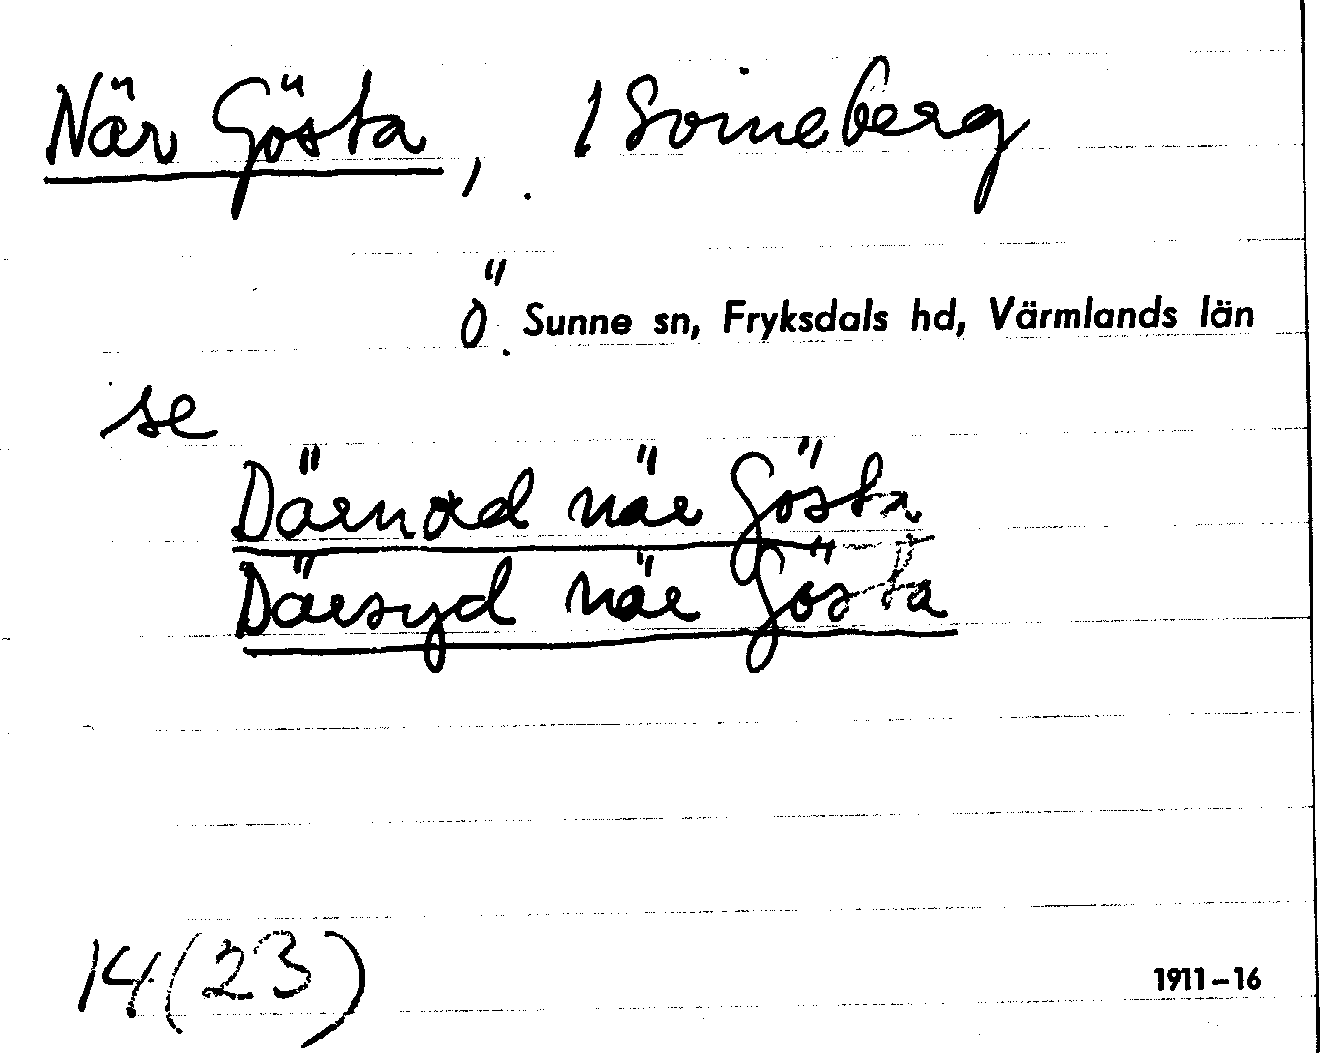 När Gösta, 1 Soineberg
Ö. Sunne sn, Fryksdals hd, Värmlands län
se
Därnord när Gösta
Därsyd när Gösta
14 (23)
1911-16